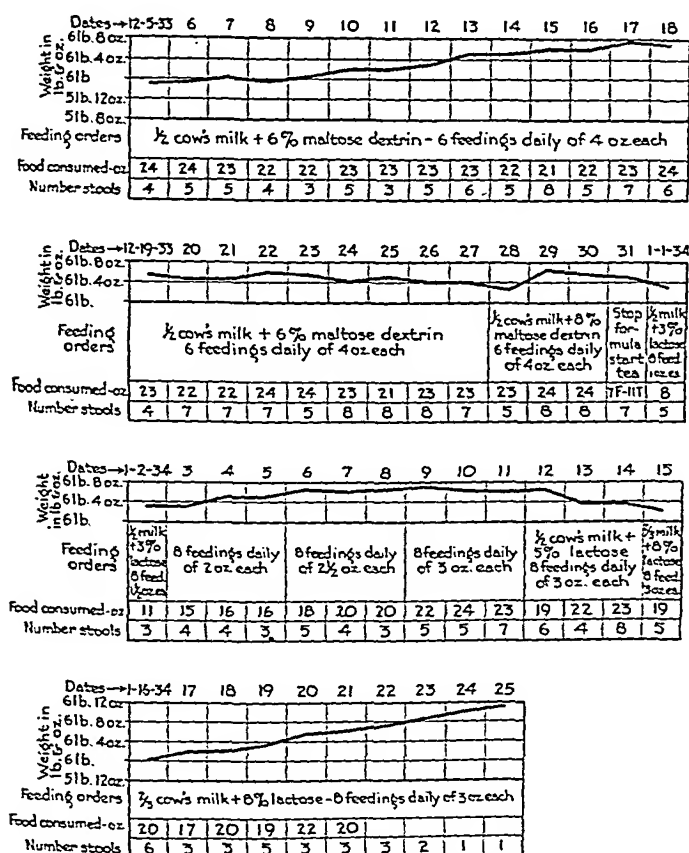 Dates→12-5-33 6 7 8 9 10 11 12 13 14 15 16 17 18
Weight in lb. & oz.
6lb. 8oz.
6lb. 4oz.
6lb
5lb. 12oz.
5lb. 8oz.
Feeding orders ½ cow's milk + 6% maltose dextrin - 6 feedings daily of 4 oz each
Food consumed-oz 24 24 23 22 22 23 23 23 23 22 21 22 23 24
Number stools 4 5 5 4 3 5 3 5 6 5 8 5 7 6
Dates→12-19-33 20 21 22 23 24 25 26 27 28 29 30 31 1-1-34
Weight in lb. & oz.
6lb. 8oz
6lb. 4oz
6lb.
Feeding orders
½ cow's milk + 6% maltose dextrin
6 feedings daily of 4oz each
½ cow's milk + 8%
maltose dextrin
6 feedings daily
of 4oz each
Stop
for-
mula
start
tea
½ milk
+3%
lactose
8 feed
1oz ea
Food consumed-oz 23 22 22 24 24 23 21 23 23 23 24 24 7F-11T 8
Number stools 4 7 7 7 5 8 8 8 7 5 8 8 7 5
Dates→1-2-34 3 4 5 6 7 8 9 10 11 12 13 14 15
Weight in lb. & oz.
6lb. 8oz
6lb. 4oz
6lb.
Feeding orders
½ milk
+3%
lactose
8 feed
1½ oz ea
8 feedings daily
of 2 oz. each
8 feedings daily
of 2½ oz. each
8 feedings daily
of 3 oz. each
½ cow's milk +
5% lactose
8 feedings daily
of 3 oz. each
⅔ milk
+8%
lactose
8 feed
3 oz ea
Food consumed-oz 11 15 16 16 18 20 20 22 24 23 19 22 23 19
Number stools 3 4 4 3 5 4 3 5 5 7 6 4 8 5
Dates→1-16-34 17 18 19 20 21 22 23 24 25
Weight in lb. & oz.
6lb. 12oz
6lb. 8oz
6lb. 4oz
6lb.
5lb. 12oz
Feeding orders ⅔ cow's milk + 8% lactose - 8 feedings daily of 3 oz each
Food consumed-oz 20 17 20 19 22 20
Number stools 6 3 3 5 3 3 3 2 1 1